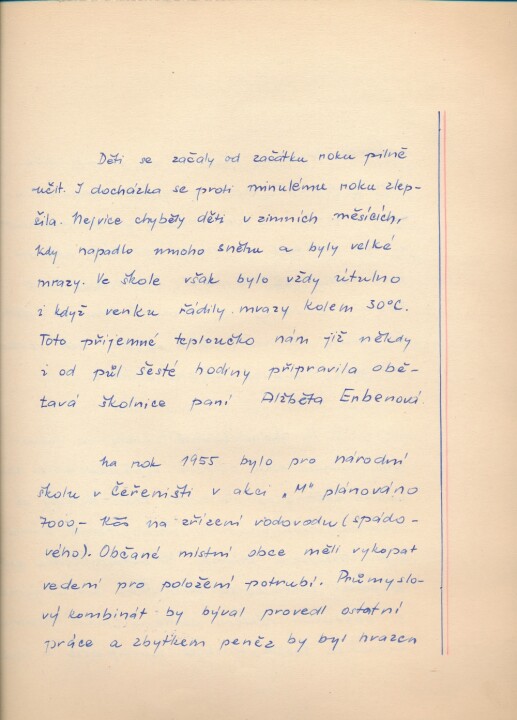 Děti se začaly od začátku roku pilně
učit. I docházka se proti minulému roku zlep-
šila. Nejvíce chyběly děti v zimních měsících,
kdy napadlo mnoho sněhu a byly velké
mrazy. Ve škole však bylo vždy útulno
i když venku řádily mrazy kolem 30°C.
Toto příjemné teploučko nám již někdy
i od půl šesté hodiny připravila obě-
tavá školnice paní Alžběta Erbenová.
Na rok 1955 bylo pro národní
školu v Čeřeništi v akci „M" plánováno
7000,- Kčs na zřízení vodovodu (spádo-
vého). Občané místní obce měli vykopat
vedení pro položení potrubí. Průmyslo-
vý kombinát by býval provedl ostatní
práce a zbytkem peněz by byl hrazen